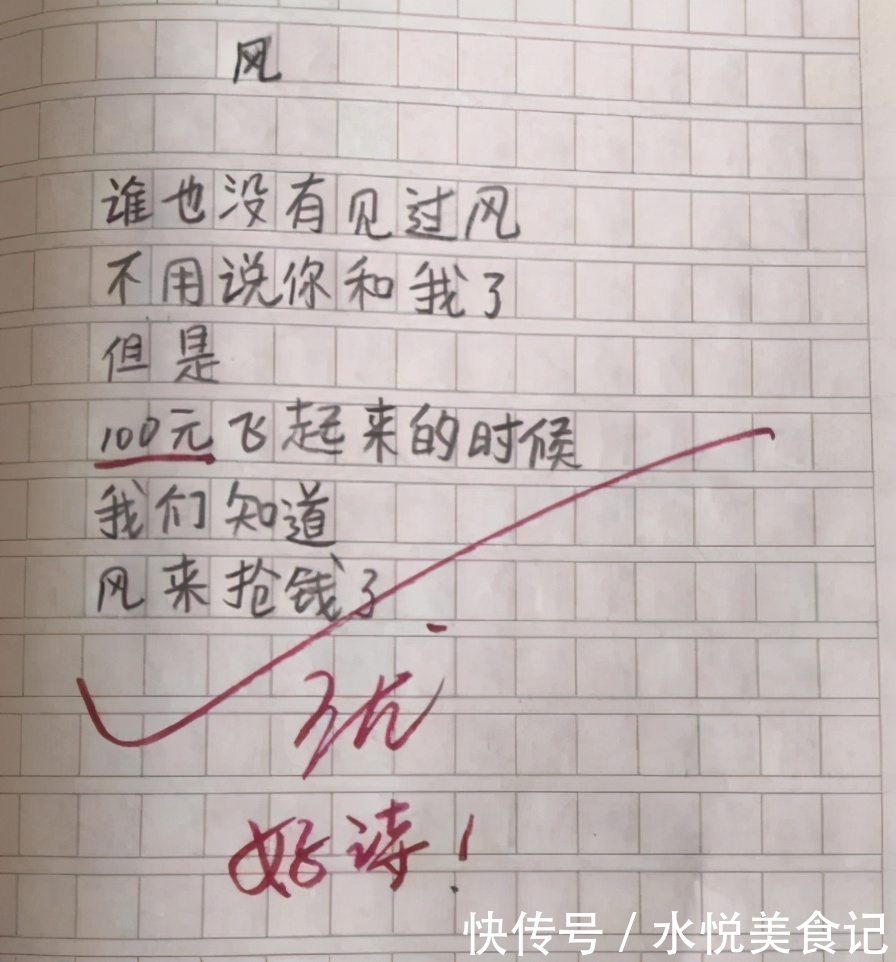 风
谁也没有见过风
不用说你和我了
但是
100元飞起来的时候
我们知道
风来抢钱了
优
好诗!
快传号 / 水悦美食记